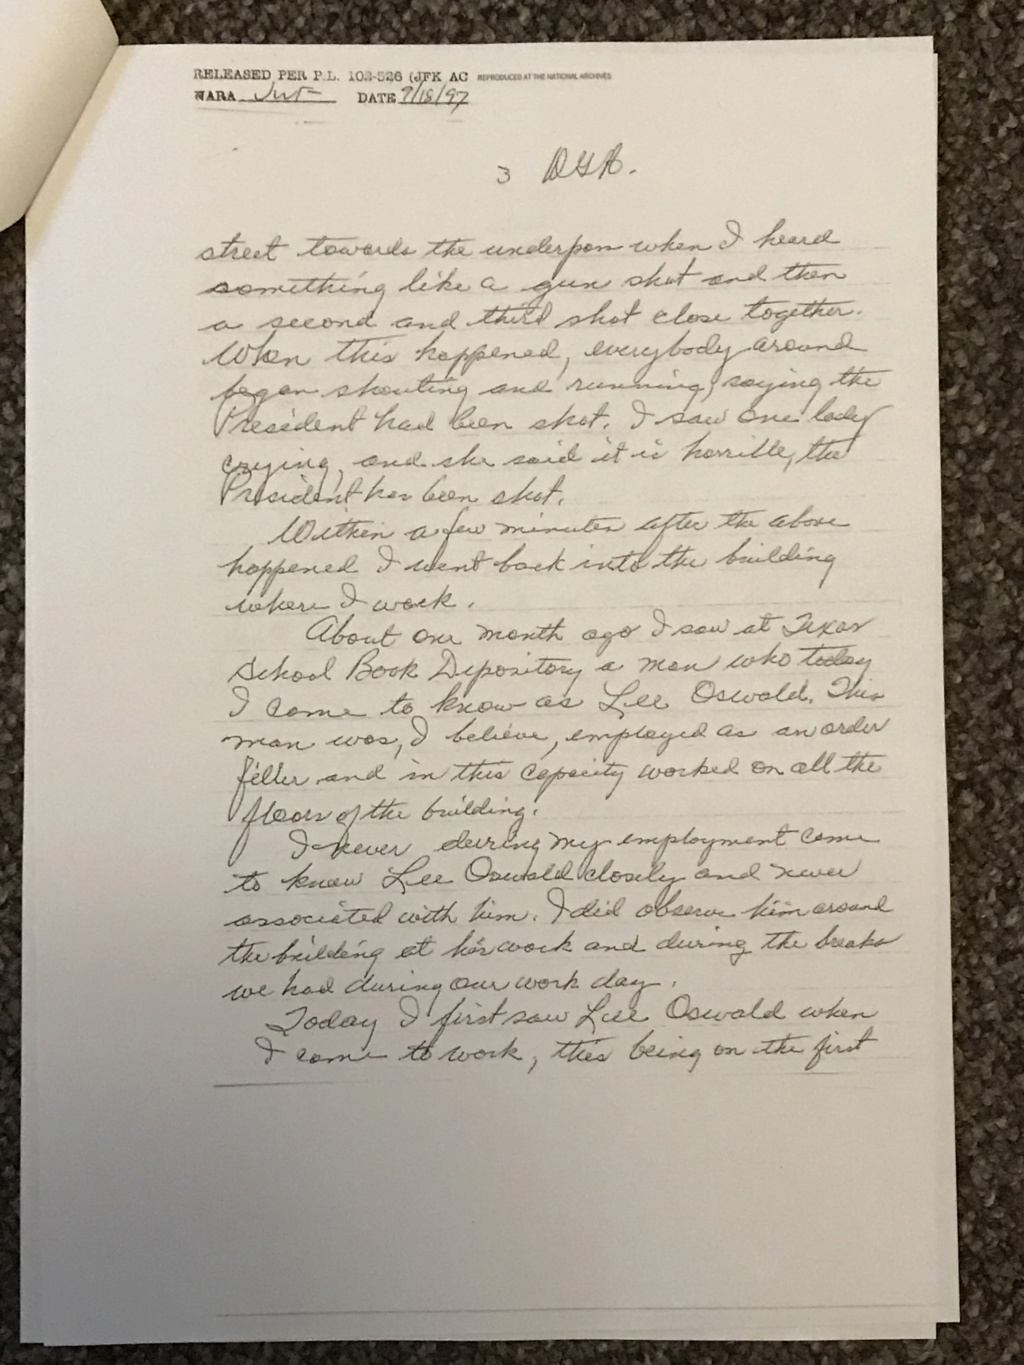 RELEASED PER P.L. 102-526 (JFK AC REPRODUCED AT THE NATIONAL ARCHIVES
NARA DATE 9/18/97
3
street towards the underpass when I heard
something like a gun shot and then
a second and third shot close together.
When this happened, everybody around
began shouting and running, saying the
President had been shot. I saw one lady
crying, and she said it is horrible, the
President has been shot.
Within a few minutes after the above
happened I went back into the building
where I work.
About one month ago I saw at Texas
School Book Depository a man who today
I came to know as Lee Oswald. This
man was, I believe, employed as an order
filler and in this capacity worked on all the
floors of the building.
I never during my employment came
to know Lee Oswald closely and never
associated with him. I did observe him around
the building at his work and during the breaks
we had during our work day.
Today I first saw Lee Oswald when
I came to work, this being on the first